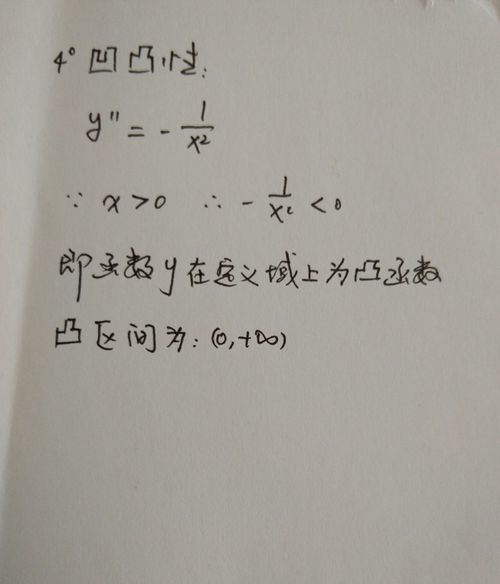 4° 凹凸性:
y'' = - 1/x²
∵ x>0 ∴ - 1/x² <0
即函数y在定义域上为凸函数
凸区间为: (0,+∞)